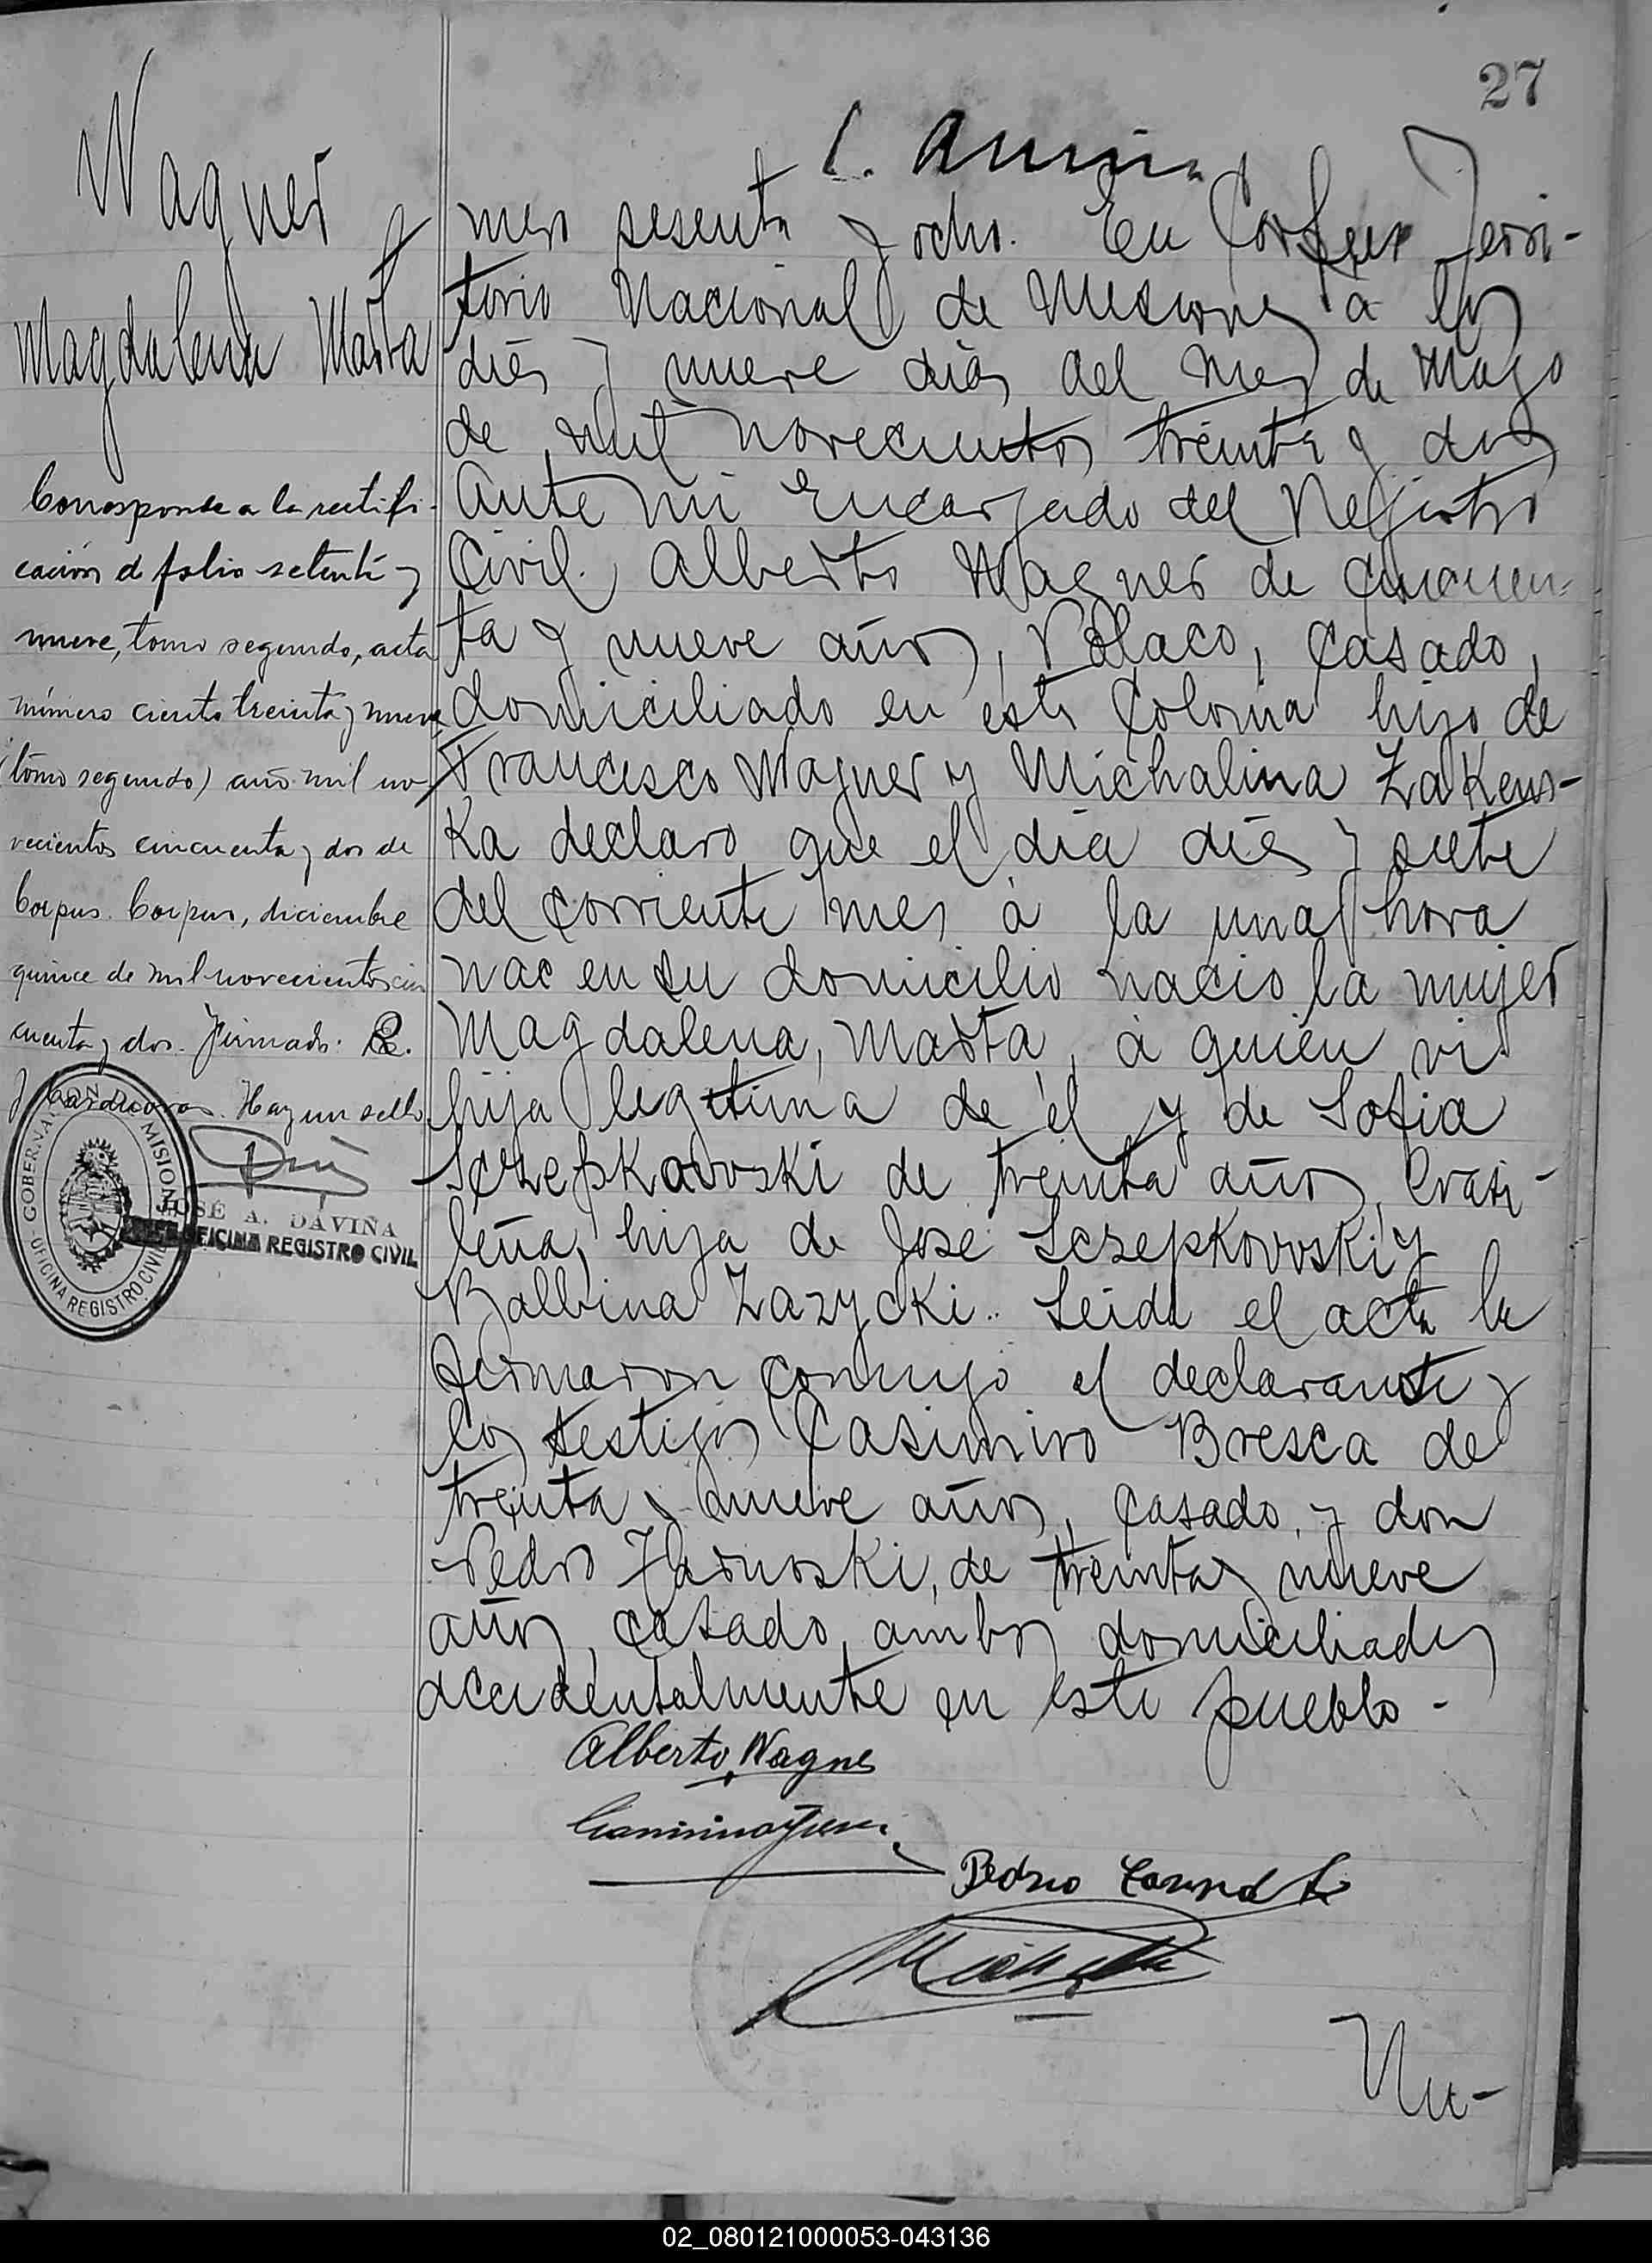 27
Wagner
Magdalena Marta
Corresponde a la rectifi-
cación d folio setenta y
nueve, tomo segundo, acta
número ciento treinta y nueve
(tomo segundo) año mil no-
vecientos cincuenta y dos de
Corpus. Corpus, diciembre
quince de mil novecientos cin
cuenta y dos. Firmado:
Hay un sello
GOBERNACION D MISIONES
OFICINA REGISTRO CIVIL
JOSÉ A. DAVIÑA
OFICINA REGISTRO CIVIL
mero sesenta y ocho. En Corpus Terri-
torio Nacional de Misiones a los
diés y nueve dias del mes de Mayo
de mil novecientos treinta y dos
Ante mi Encargado del Registro
Civil. Alberto Wagner de cincuen-
ta y nueve años, Polaco, casado,
domiciliado en esta Colonia hijo de
Francisco Wagner y Michalina Zakens-
ka declaro que el dia diés y siete
del corriente mes à la una hora
nac en su domicilio nacio la mujer
Magdalena, Marta, à quien vi
hija legitima de él y de Sofia
Sczepkowski de treinta años, brasi-
leña, hija de José Sczepkowski y
Balbina Zazycki. Leida el acta la
firmaron conmigo el declarante y
los testigos Casimiro Bresca de
treinta y nueve años, casado, y don
Pedro de treinta y nueve
años, casado, ambos domiciliados
accidentalmente en este pueblo.-
Alberto Wagner
Pedro
Nu-
02_080121000053-043136